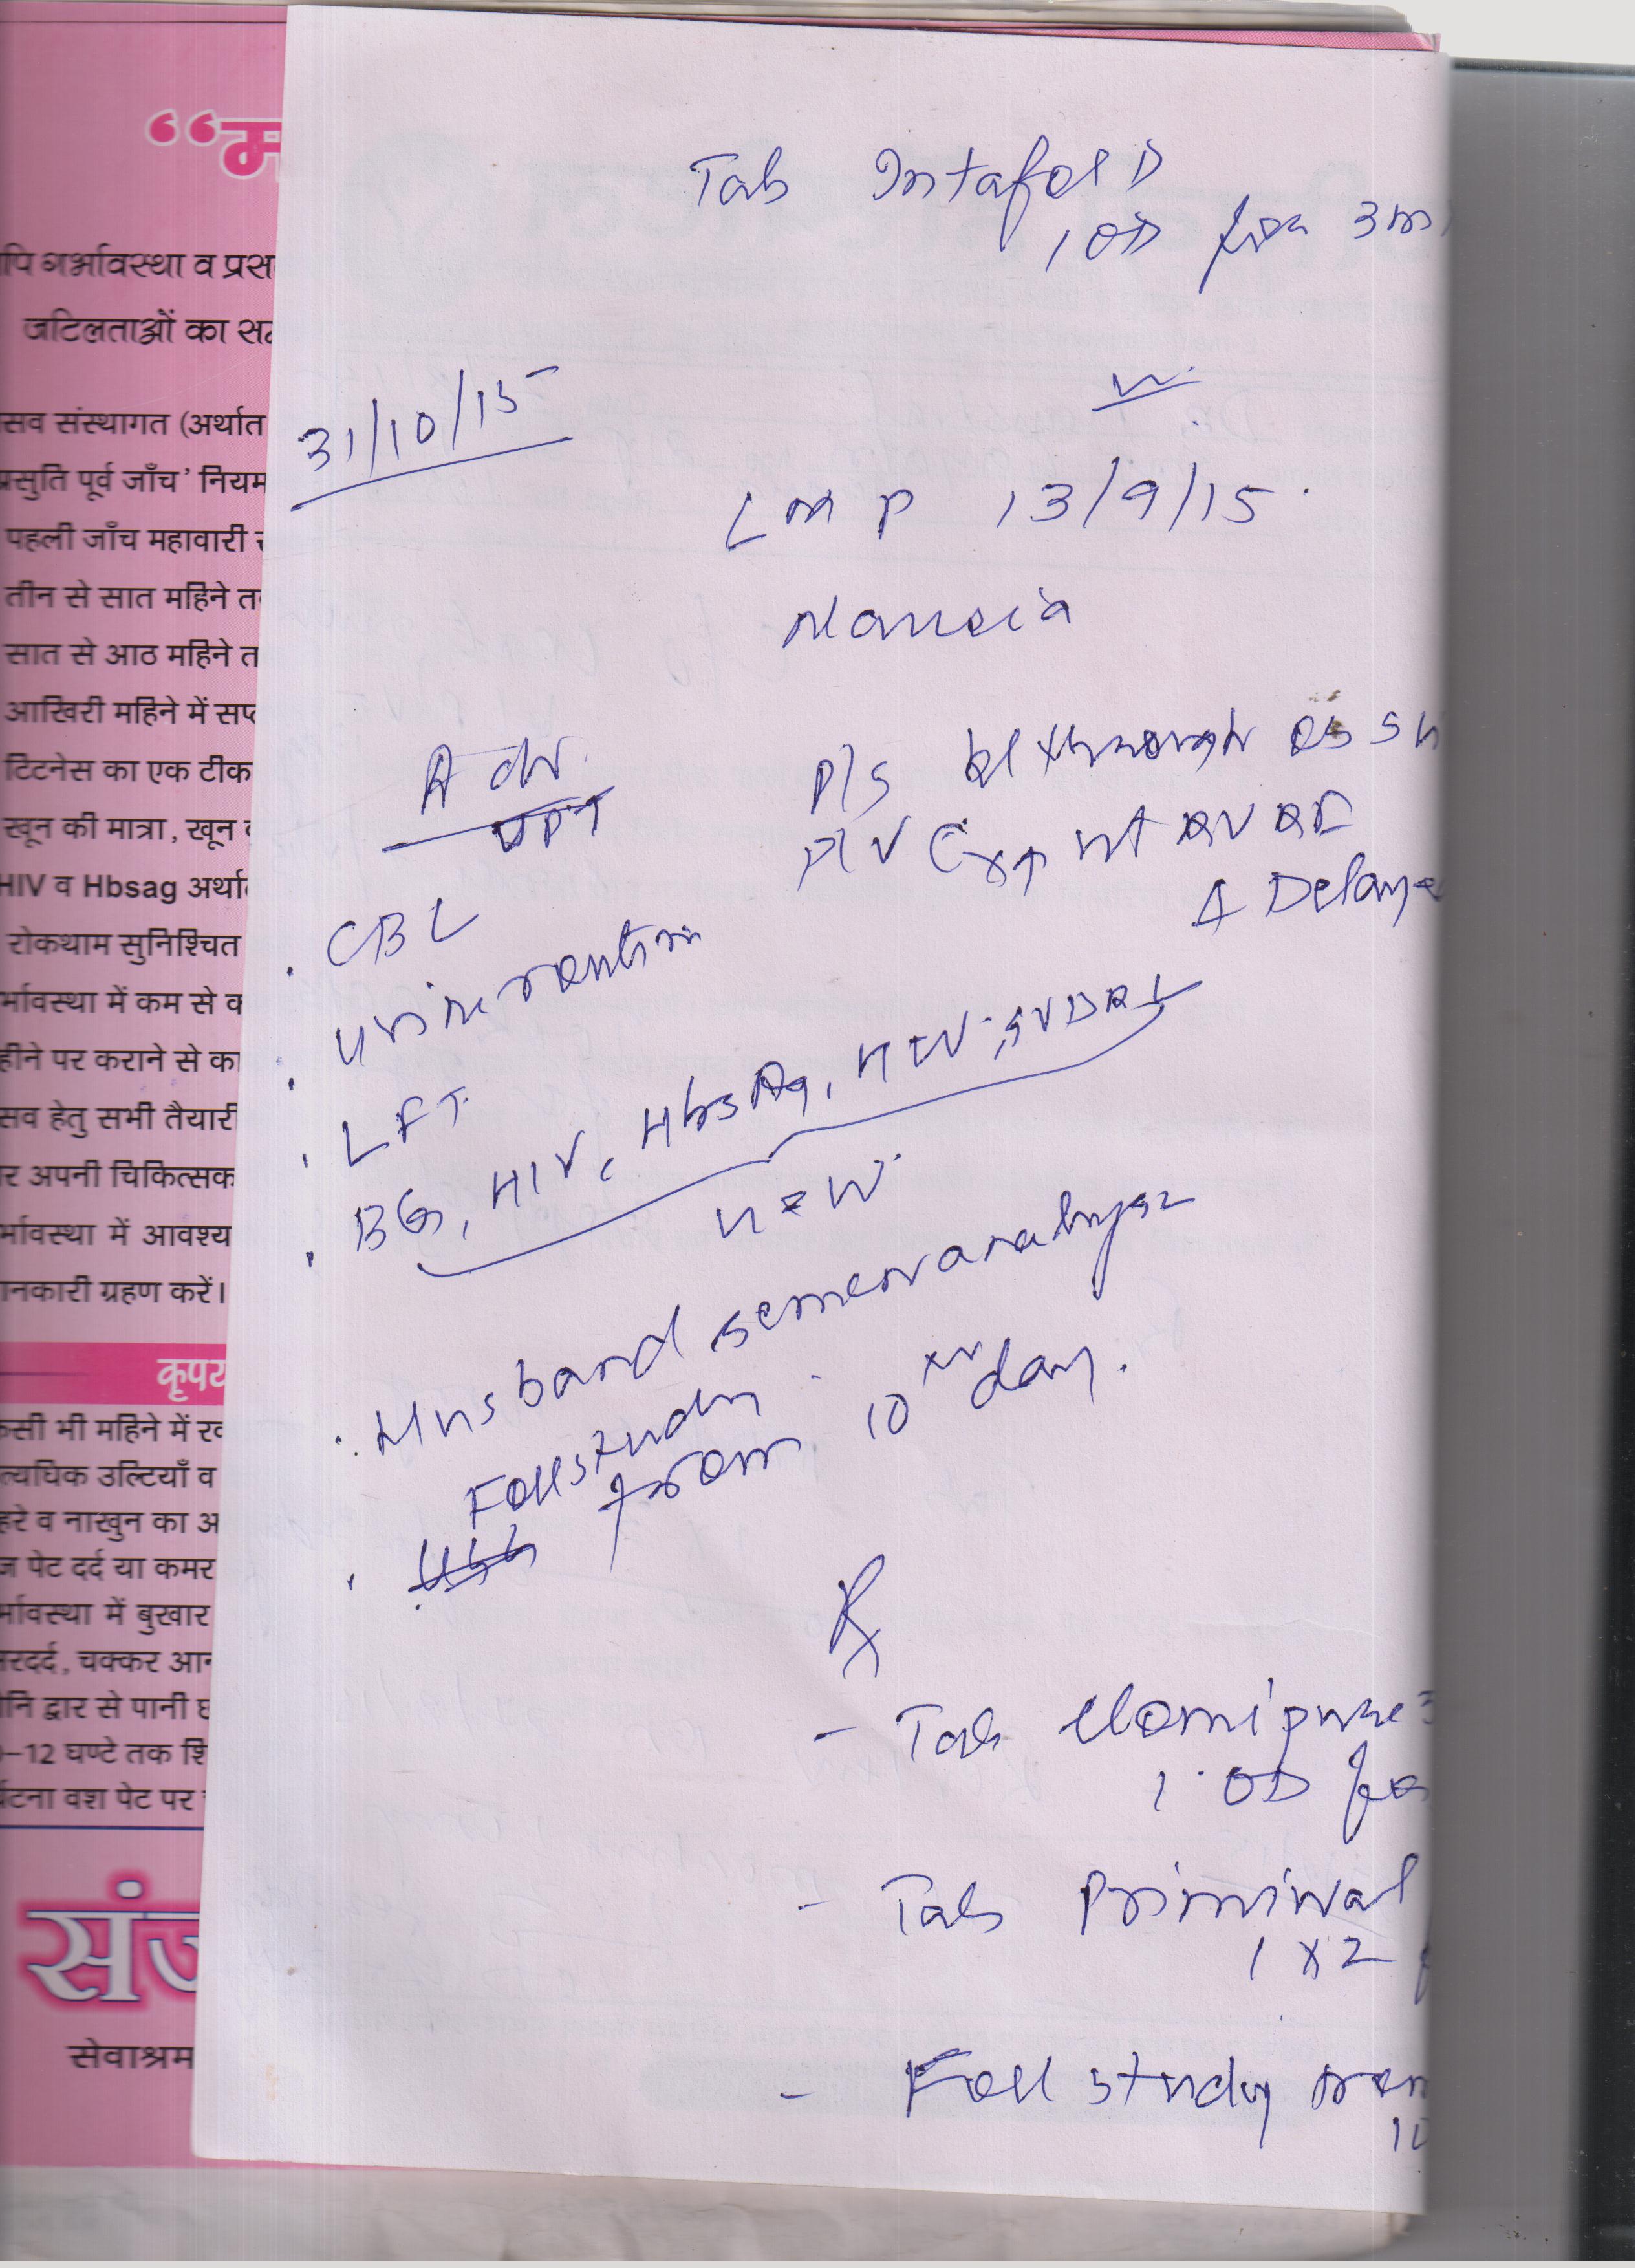 “म
पि गर्भावस्था व प्रस
जटिलताओं का सम
सव संस्थागत (अर्थात
प्रसुति पूर्व जाँच’ नियम
पहली जाँच महावारी
तीन से सात महिने त
सात से आठ महिने त
आखिरी महिने में सप्त
टिटनेस का एक टीक
खून की मात्रा, खून
HIV व Hbsag अर्था
रोकथाम सुनिश्चित
र्भावस्था में कम से क
हीने पर कराने से का
सव हेतु सभी तैयारी
र अपनी चिकित्सक
र्भावस्था में आवश्य
नकारी ग्रहण करें।
कृपय
कसी भी महिने में रक
त्यधिक उल्टियाँ व
हरे व नाखुन का अ
ज पेट दर्द या कमर
र्भावस्था में बुखार
रदर्द, चक्कर आन
नि द्वार से पानी
-12 घण्टे तक शि
र्घटना वश पेट पर
संज
सेवाश्रम
Tab Intafol D
1 OD for 3m
31/10/15
LMP 13/9/15
Nausea
P/S bl through os s
P/V Cx nt AV AF
Delaye
Adv.
UPT
CBC
Urine routine
LFT
BG, HIV, HbsAg, HCV, SVDRL
H & W
Husband semen analysis
Foll study
from 10th day.
USG
Rx
- Tab Clomipure
1 OD for
- Tab Primiwal
1 x 2
- Foll study from
10